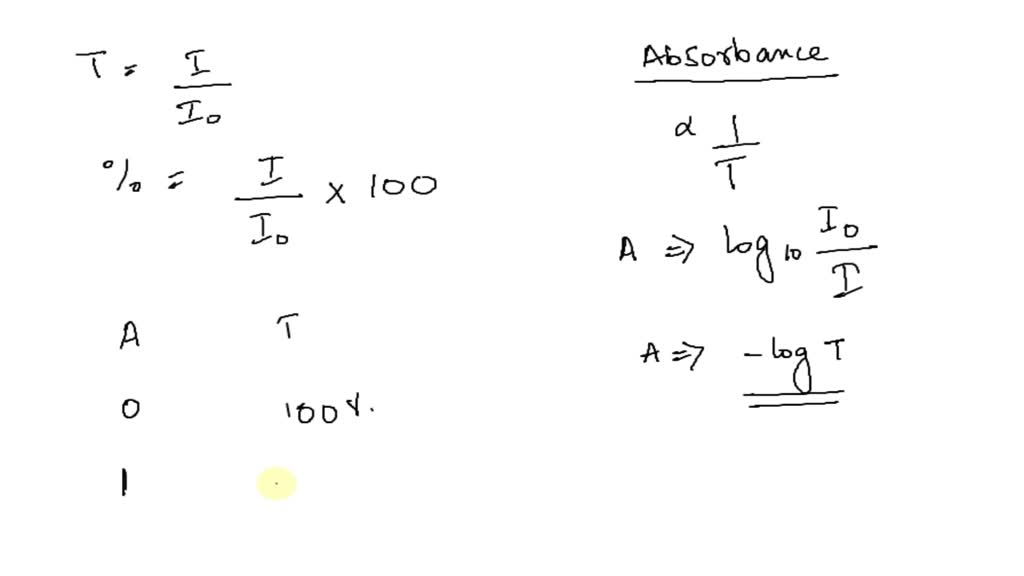 T = I / I₀
% = I / I₀ × 100
A T
0 100%.
1
Absorbance
α 1 / T
A ⇒ log₁₀ I₀ / I
A ⇒ - log T